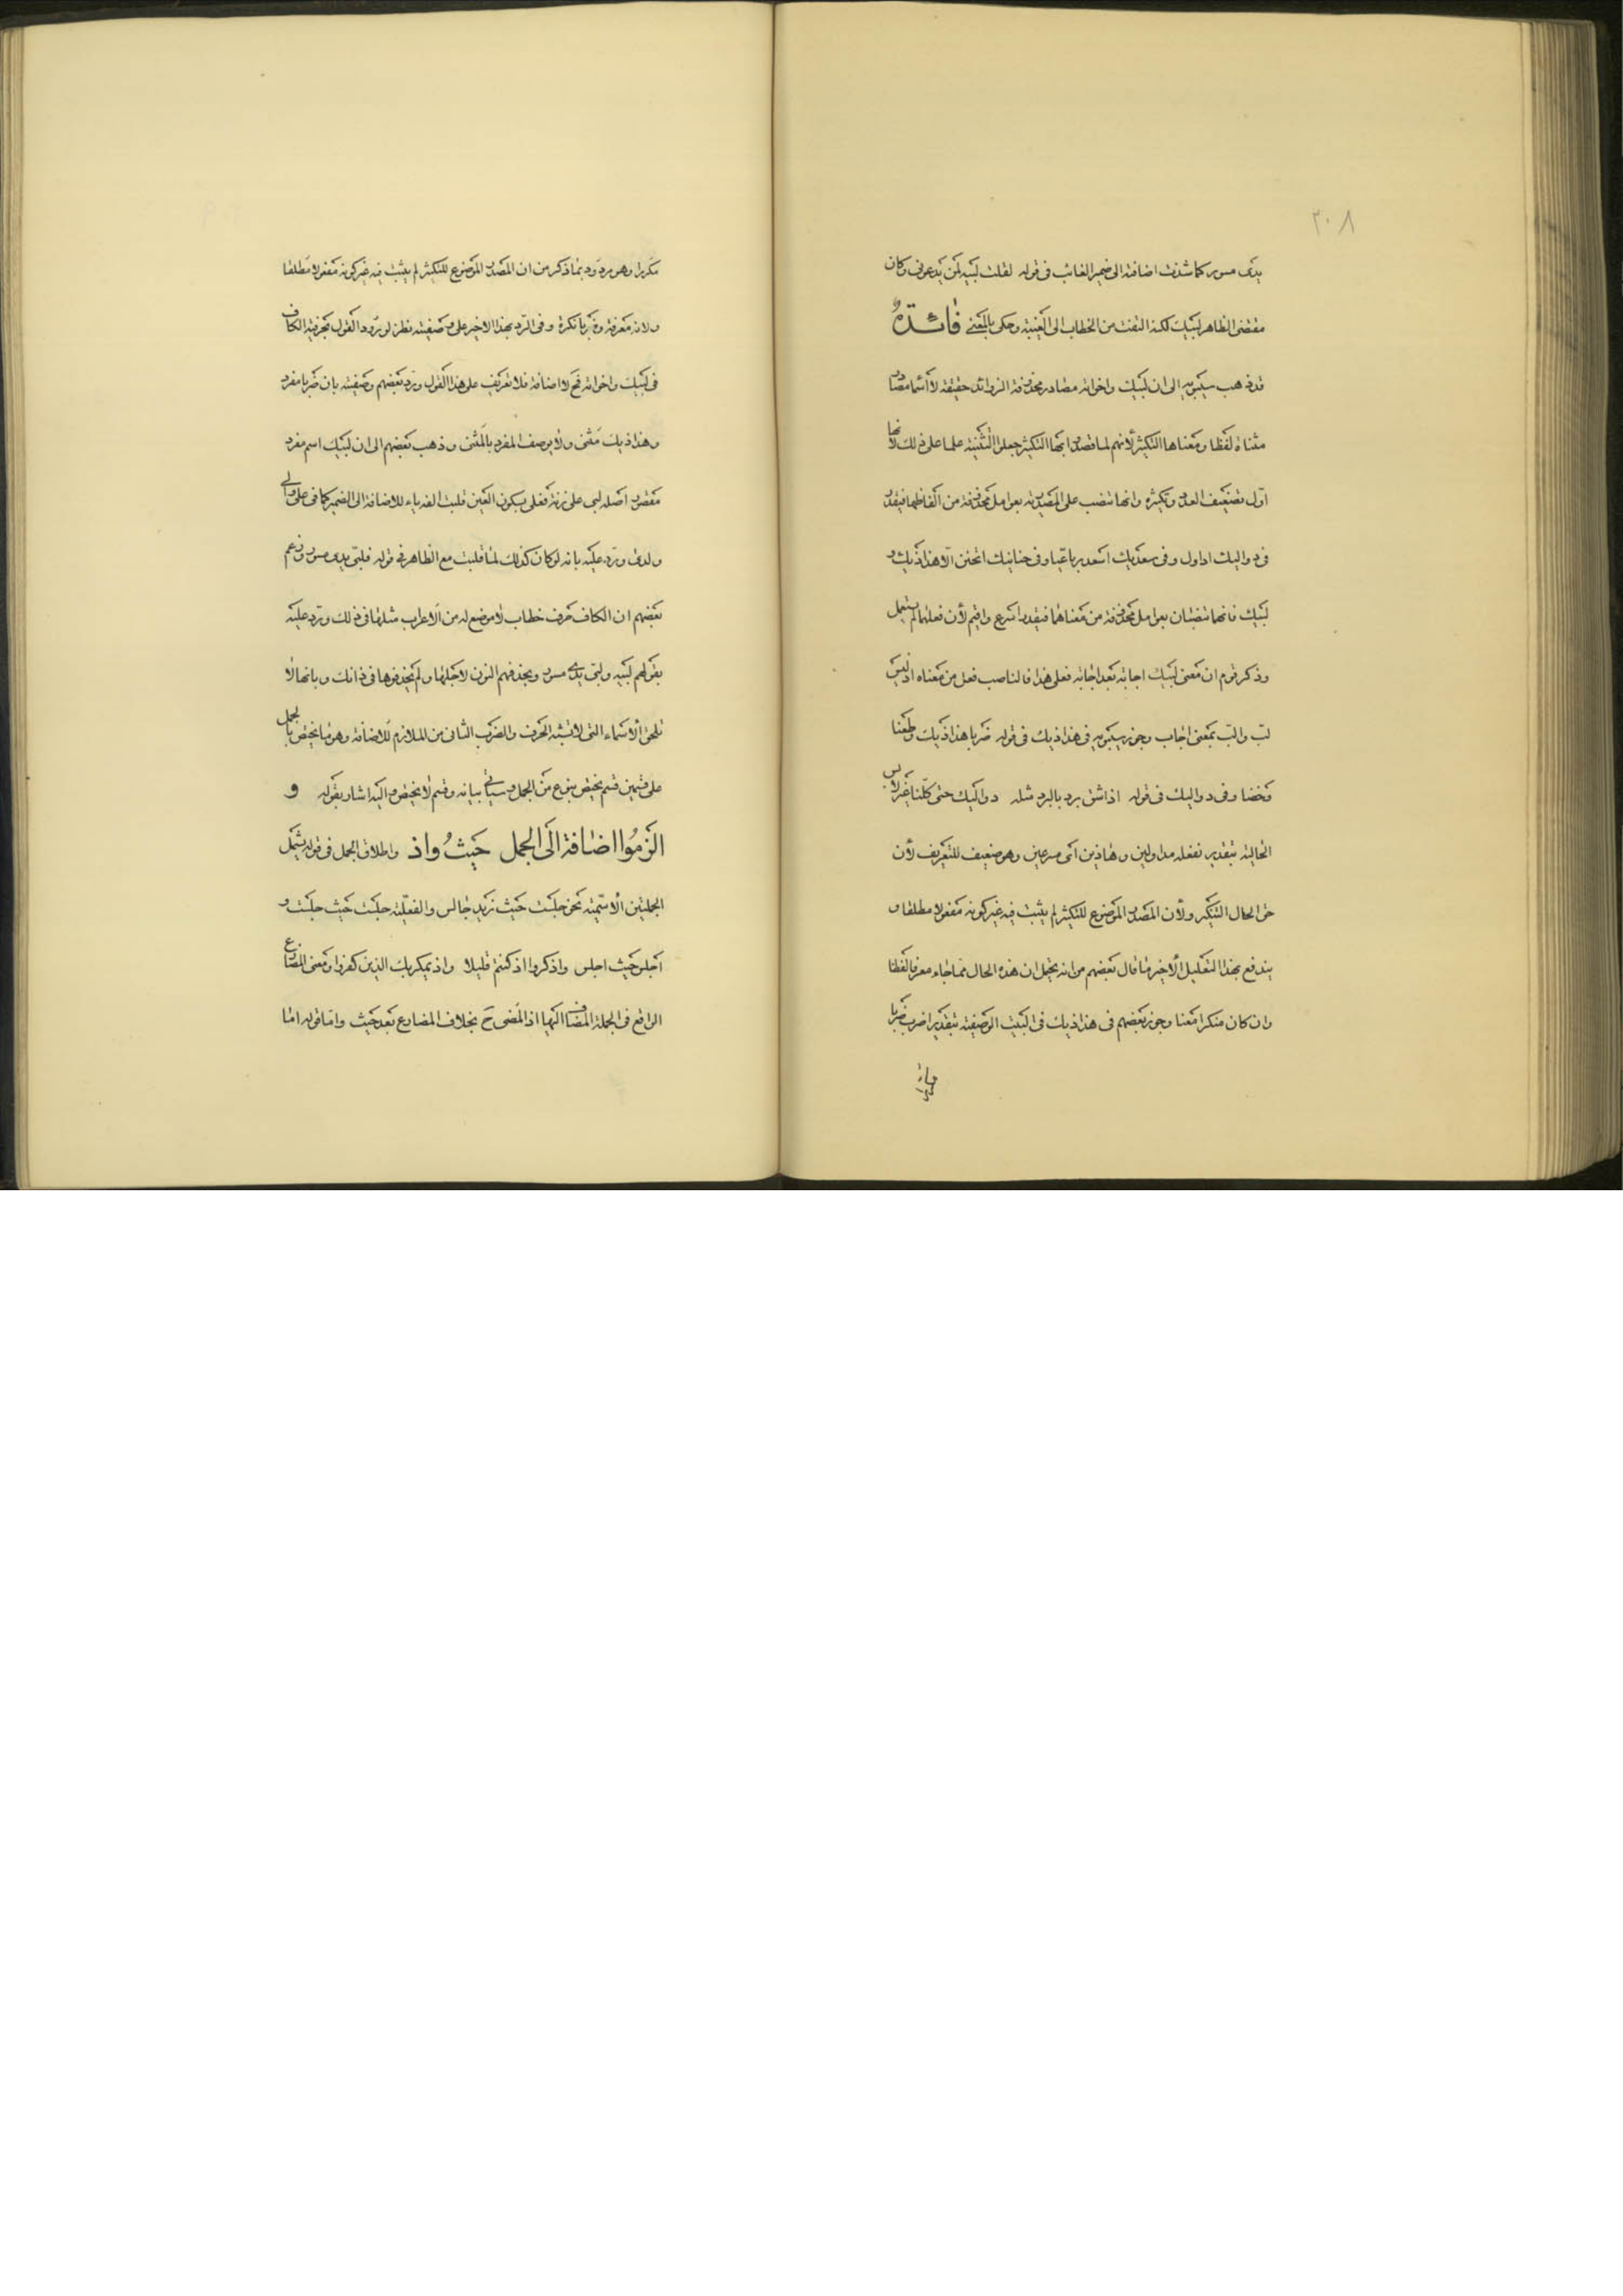 ٢٠٨
يدى مسور كما شذت اضافته الى ضمير الغائب فى قوله لقلت لبيه لمن يدعونى وكان
مقتضى الظاهر لبيك لكنه التفت من الخطاب الى الغيبة وحكى فائدة
قد ذهب سيبويه الى ان لبيك واخواته مصادر محذوفة الزوائد حقيقة لا أسما مصادر
مثناة لفظا ومعناها التكثير لأنهم لما قصدوا بها التكثير جعلوا التثنية علما على ذلك لأنها
اول تضعيف العدد وتكثيره وانها تنصب على المصدرية بعوامل محذوفة من ألفاظها فيقدر
فى دواليك اداول وفى سعديك اسعد وفى حنانيك اتحنن الّا هذاذيك و
لبيك فانهما ينصبان بعوامل محذوفة من معناهما فيقدر اسرع واقيم لأن فعلهما لم يستعمل
وذكر قوم ان معنى لبيك اجابة بعد اجابة فعلى هذا فالناصب فعل من معناه اذ ليس
لبّ والبّ بمعنى اجاب وجوز سيبويه فى هذاذيك فى قوله ضربا هذاذيك وطعنا
وخضا وفى دواليك فى قوله اذا شق برد بالبرد مثله دواليك حتى كلنا غير لابس
الحالية بتقدير نفعله مداولين وهاذين اى مسرعين وهو ضعيف للتعريف لأن
حق الحال التنكير ولأن المصدر الموضوع للتكثير لم يثبت فيه غير كونه مفعولا مطلقا و
يندفع بهذا التعليل الأخير ما قال بعضهم من انه يحتمل ان هذه الحال مما جاء معرفا لفظا
وان كان منكرا معنا وجوز بعضهم فى هذاذيك فى البيت الوصفية بتقدير اضرب ضربا
مكررا وهو مردود بما ذكر من ان المصدر الموضوع للتكثير لم يثبت فيه غير كونه مفعولا مطلقا
ولانه معرفة وضربا نكرة وفى الرد بهذا الاخير على وصفيته نظر لورود القول بحرفية الكاف
فى لبيك واخواته فح لا اضافة فلا تعريف على هذا القول ورد بعضهم وصفيته بان ضربا مفرد
وهذاذيك مثنى ولا يوصف المفرد بالمثنى وذهب بعضهم الى ان لبيك اسم مفرد
مقصور اصله لبى على زنة فعلى بسكون العين قلبت الفه ياء للاضافة الى الضمير كما فى على والى
ولدى ورد عليه بانه لو كان كذلك لما قلبت مع الظاهر فى قوله فلبّى يدى مسور وزعم
بعضهم ان الكاف حرف خطاب لا موضع له من الاعراب مثلها فى ذلك ورد عليه
بقولهم لبيه ولبى يدى مسور وبحذفهم النون لاجلها ولم يحذفوها فى ذانك وبانها لا
تلحق الأسماء التى لا تشبه الحرف والضرب الثانى من الملازم للاضافة وهو ما يختص بالجمل
على قسمين قسم يختص بنوع من الجمل وسياتى بيانه وقسم لا يختص واليه اشار بقوله و
الزموا اضافة الى الجمل حيث واذ واطلاق الجمل فى قوله يشمل
الجملتين الأسمية نحو جلست حيث زيد جالس والفعلية جلست حيث جلست و
اجلس حيث اجلس واذكروا اذ كنتم قليلا واذ يمكر بك الذين كفروا ومعنى المضارع
الواقع فى الجملة المضاف اليها اذ المضى ح بخلاف المضارع بعد حيث واما قوله اما